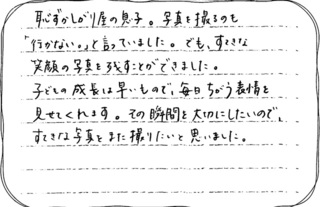 恥ずかしがり屋の息子。写真を撮るのも
「行かない。」と言っていました。でも、すてきな
笑顔の写真を残すことができました。
子どもの成長は早いもので、毎日ちがう表情を
見せてくれます。その瞬間を大切にしたいので、
すてきな写真をまた撮りたいと思いました。